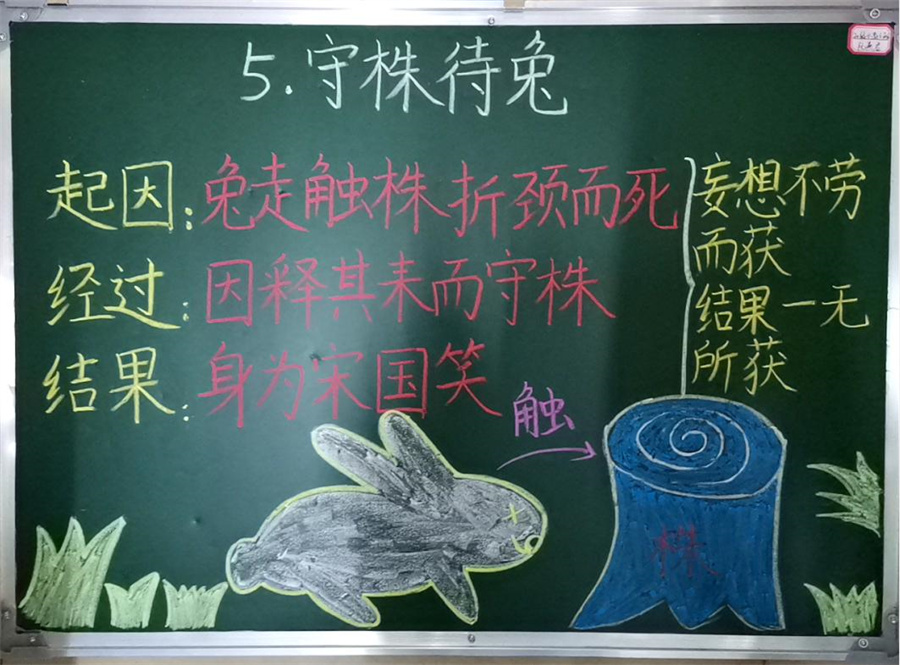 5.守株待兔
起因:兔走触株折颈而死
经过:因释其耒而守株
结果:身为宋国笑
妄想不劳
而获
结果一无
所获
触
株